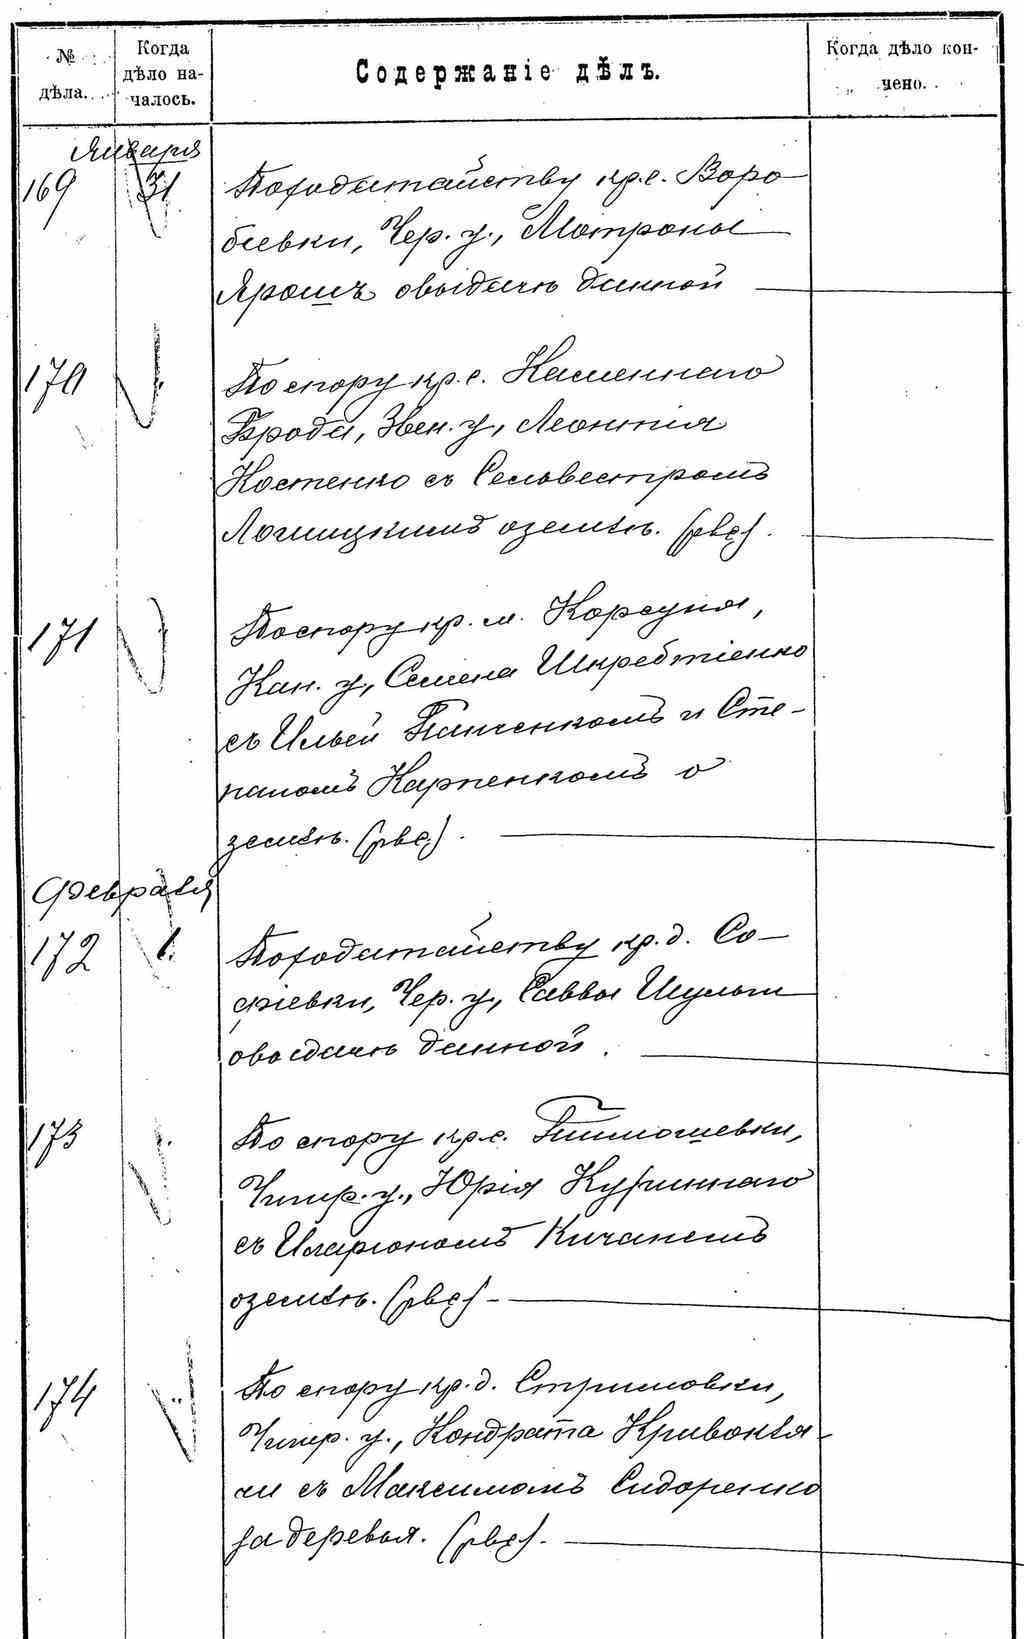 № дѣла.
Когда дѣло началось.
Содержаніе дѣлъ.
Когда дѣло кончено.
Января
169 31 По ходатайству кр. с. Воро
бьевки, Чер. у., Мотроны
Ярошъ о выдачѣ данной
170 По спору кр. с. Каменнаго
Брода, Звен. у., Леонтія
Костенко съ Сельвестромъ
озем­лѣ.
171 По спору кр. м. Корсуня,
Кан. у., Семена Шкребтіенко
съ Ильей Панченкомъ и Сте-
паномъ Карпенкомъ о
землѣ.
Февраля
172 1. По ходатайству кр. д. Со-
фіевки, Чер. у., Саввы Шульги
о выдачѣ данной.
173 По спору кр. с. Тимошевки,
Чигир. у., Юрія
съ Иларіономъ
о землѣ.
174 По спору кр. д. Стримовки,
Чигир. у., Кондрата Кривокля-
чи съ Максимомъ Сидоренко
за деревья.